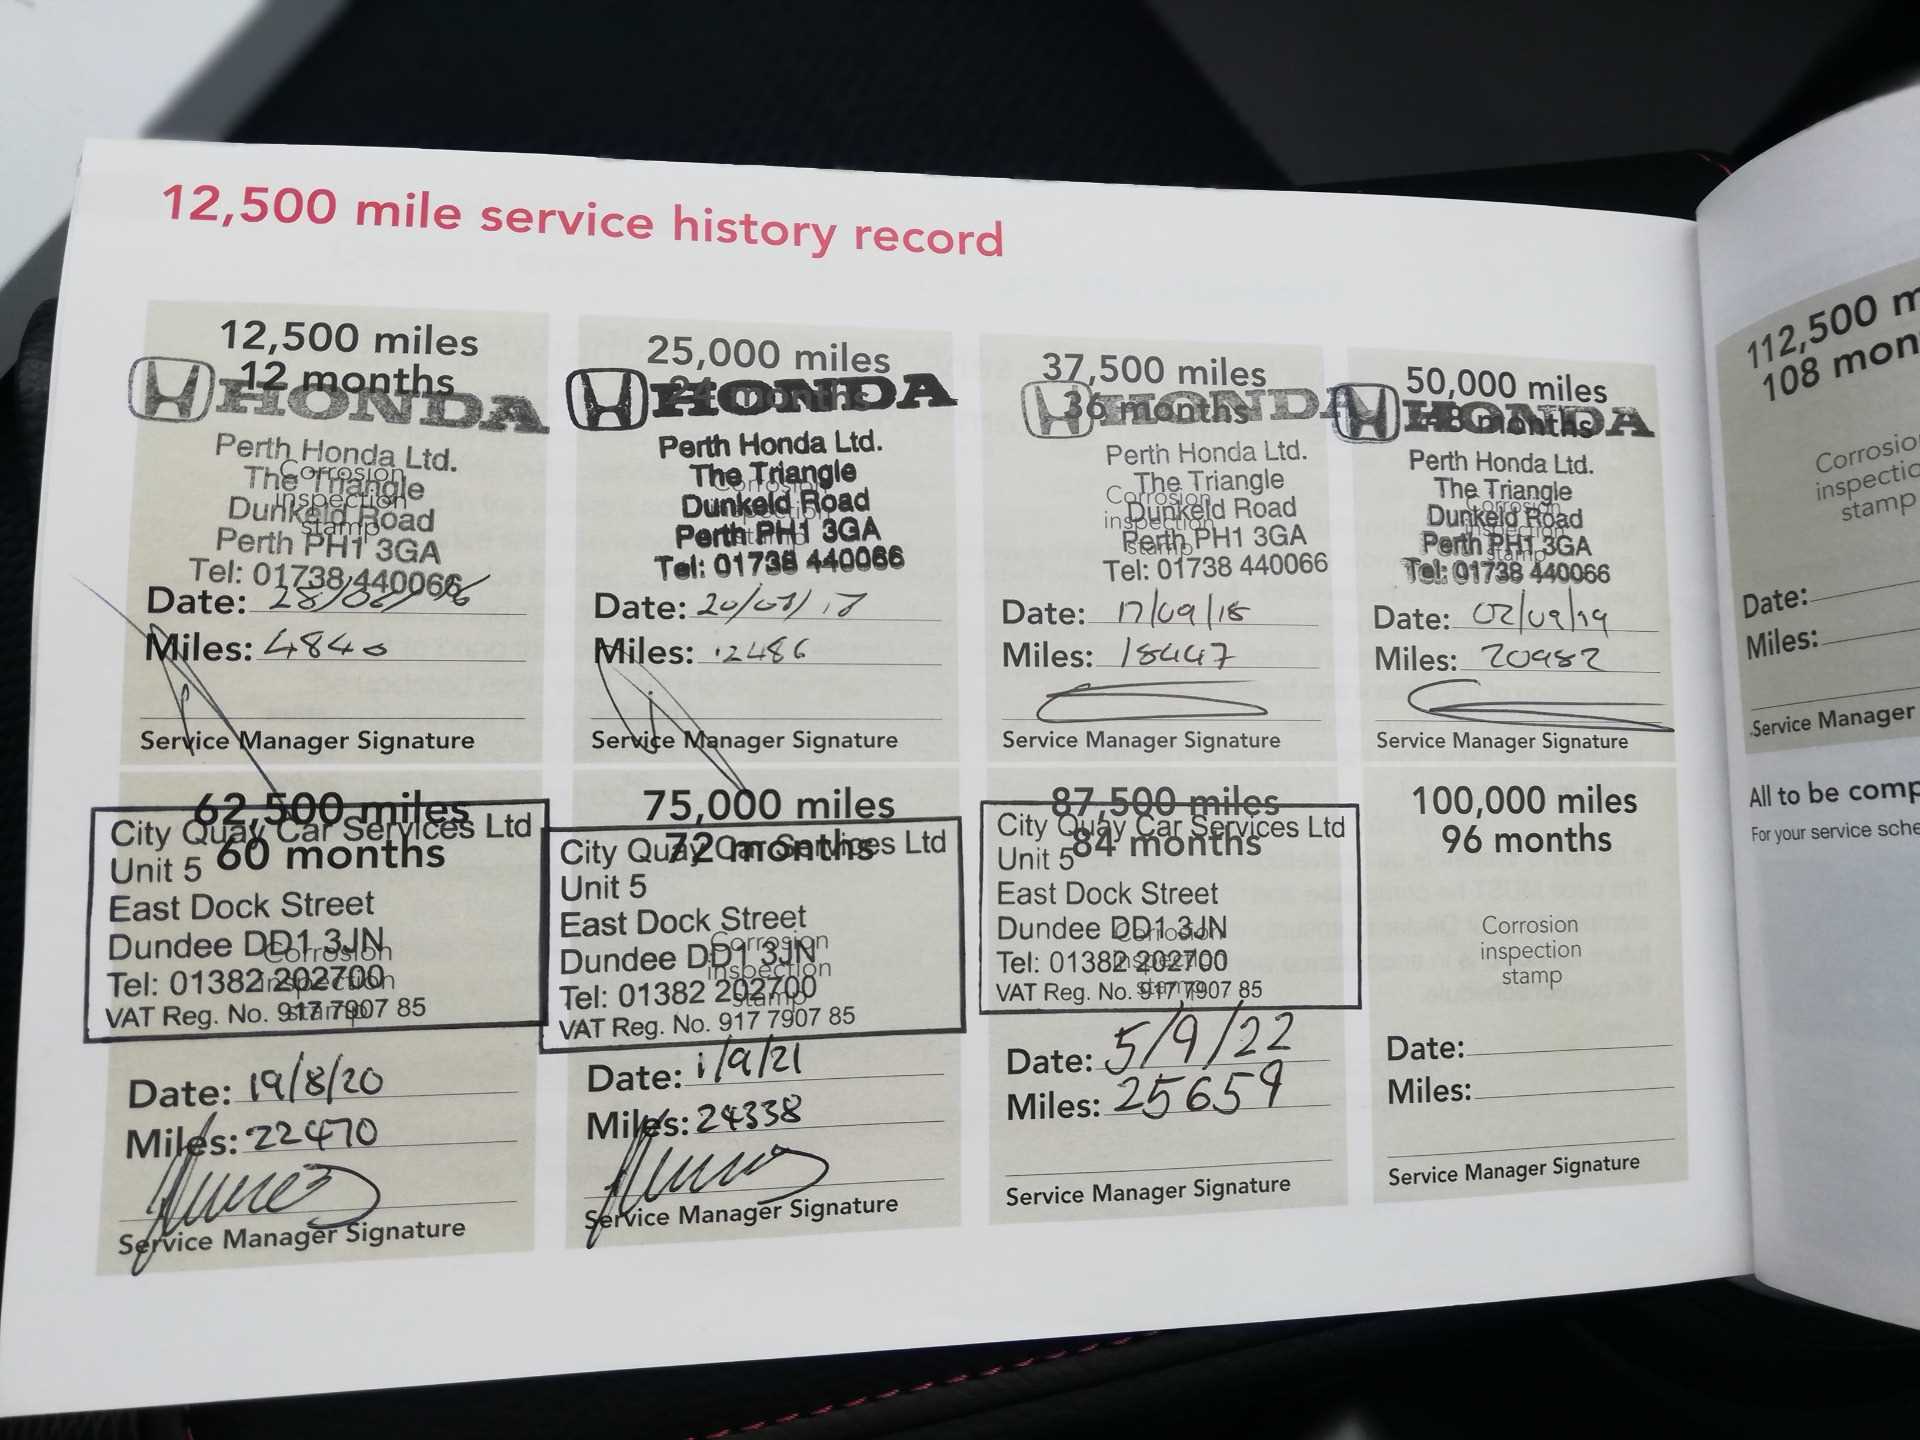 12,500 mile service history record
12,500 miles
12 months
HONDA
Perth Honda Ltd.
The Triangle
Dunkeld Road
Perth PH1 3GA
Tel: 01738 440066
Corrosion
inspection
stamp
Date:
Miles: 4840
Service Manager Signature
25,000 miles
24 months
HONDA
Perth Honda Ltd.
The Triangle
Dunkeld Road
Perth PH1 3GA
Tel: 01738 440066
Corrosion
inspection
stamp
Date:
Miles: 12486
Service Manager Signature
37,500 miles
36 months
HONDA
Perth Honda Ltd.
The Triangle
Dunkeld Road
Perth PH1 3GA
Tel: 01738 440066
Corrosion
inspection
stamp
Date: 17/09/18
Miles: 18447
Service Manager Signature
50,000 miles
48 months
HONDA
Perth Honda Ltd.
The Triangle
Dunkeld Road
Perth PH1 3GA
Tel: 01738 440066
Corrosion
inspection
stamp
Date: 02/09/19
Miles: 20982
Service Manager Signature
62,500 miles
60 months
City Quay Car Services Ltd
Unit 5
East Dock Street
Dundee DD1 3JN
Tel: 01382 202700
VAT Reg. No. 917 7907 85
Corrosion
inspection
stamp
Date: 19/8/20
Miles: 22470
Service Manager Signature
75,000 miles
72 months
City Quay Car Services Ltd
Unit 5
East Dock Street
Dundee DD1 3JN
Tel: 01382 202700
VAT Reg. No. 917 7907 85
Corrosion
inspection
stamp
Date: 1/9/21
Miles: 24338
Service Manager Signature
87,500 miles
84 months
City Quay Car Services Ltd
Unit 5
East Dock Street
Dundee DD1 3JN
Tel: 01382 202700
VAT Reg. No. 917 7907 85
Corrosion
inspection
stamp
Date: 5/9/22
Miles: 25659
Service Manager Signature
100,000 miles
96 months
Corrosion
inspection
stamp
Date:
Miles:
Service Manager Signature
112,500 m
108 mon
Corrosio
inspectic
stamp
Date:
Miles:
Service Manager
All to be comp
For your service sche